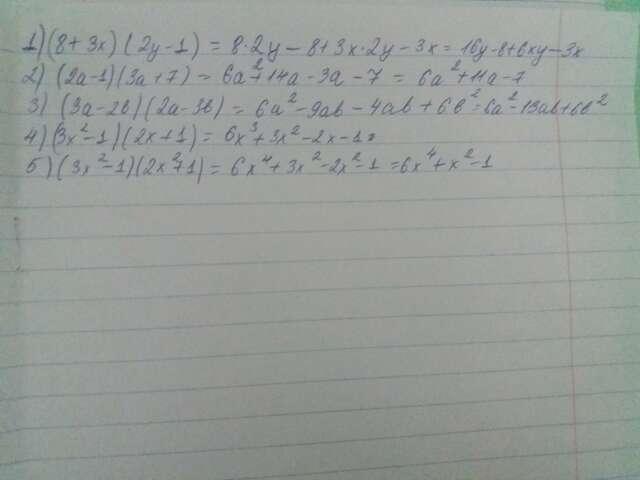 1) (8 + 3x) (2y - 1) = 8 · 2y - 8 + 3x · 2y - 3x = 16y - 8 + 6xy - 3x
2) (2a - 1)(3a + 7) = 6a² + 14a - 3a - 7 = 6a² + 11a - 7
3) (3a - 2b)(2a - 3b) = 6a² - 9ab - 4ab + 6b² = 6a² - 13ab + 6b²
4) (3x² - 1)(2x + 1) = 6x³ + 3x² - 2x - 1
5) (3x² - 1)(2x² + 1) = 6x⁴ + 3x² - 2x² - 1 = 6x⁴ + x² - 1